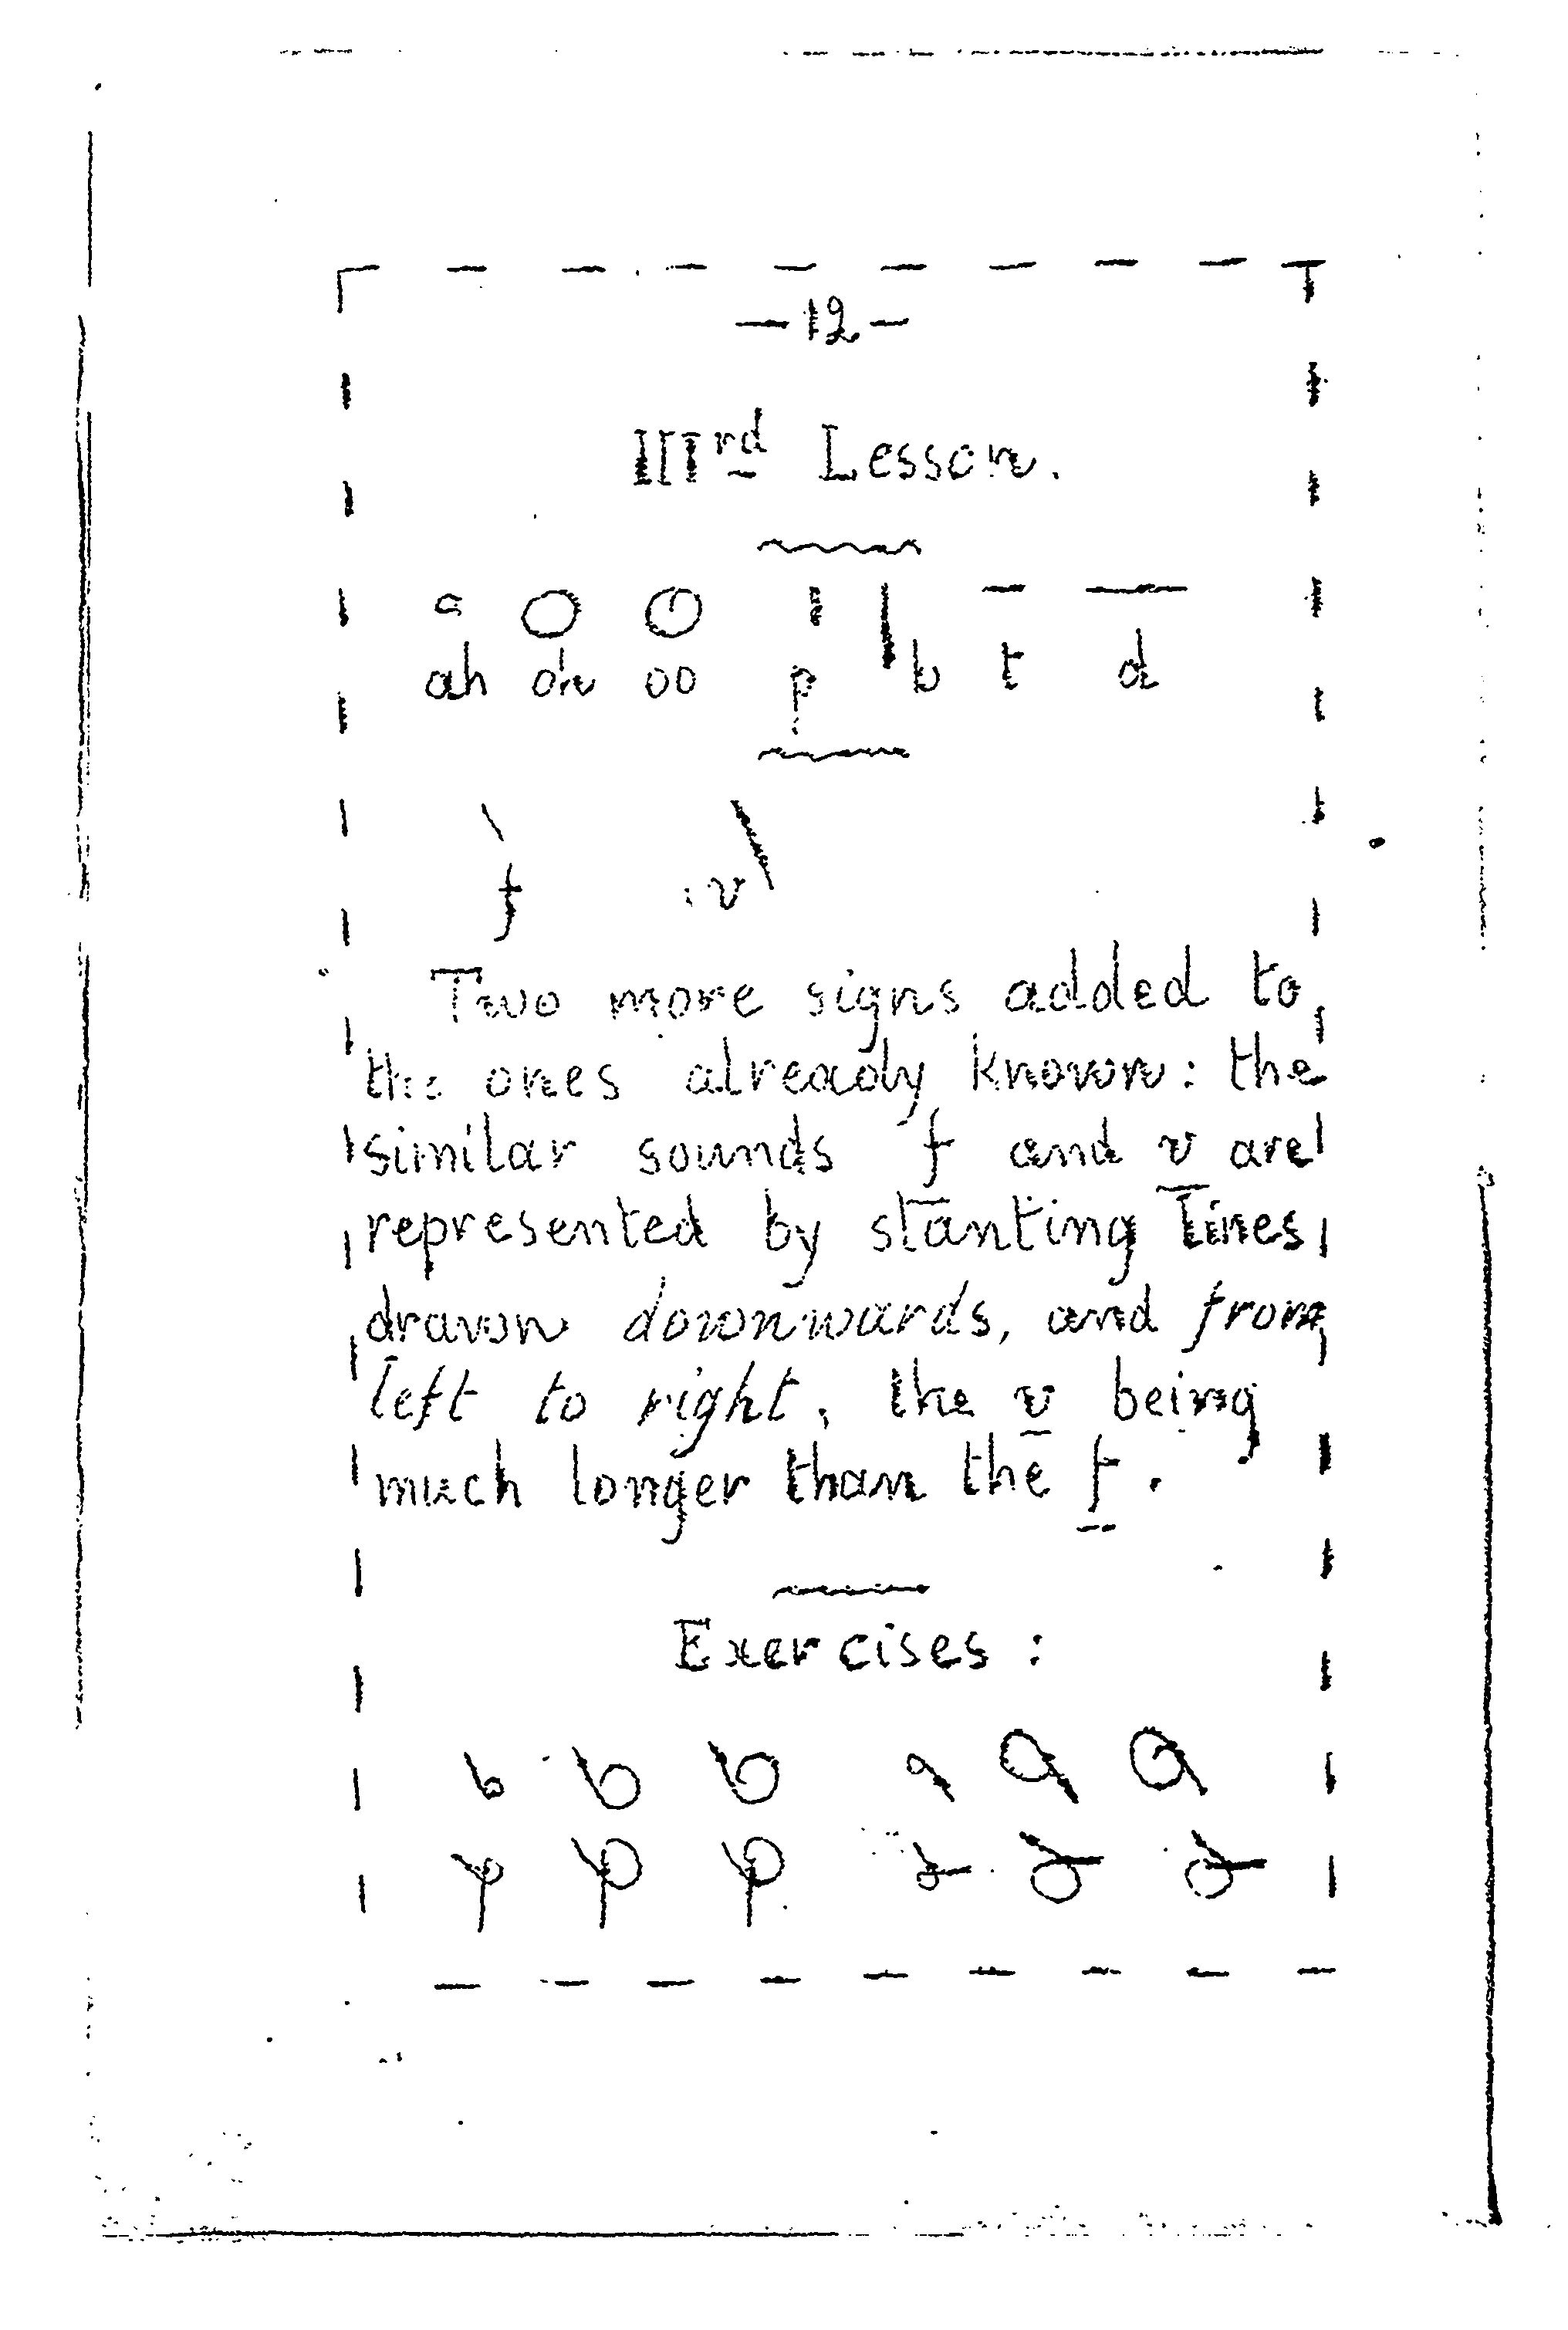 —12—
IIIrd Lesson.
ah oh oo p b t d
f v
Two more signs added to
the ones already known: the
similar sounds f and v are
represented by slanting lines
drawn downwards, and from
left to right, the v being
much longer than the f.
Exercises: